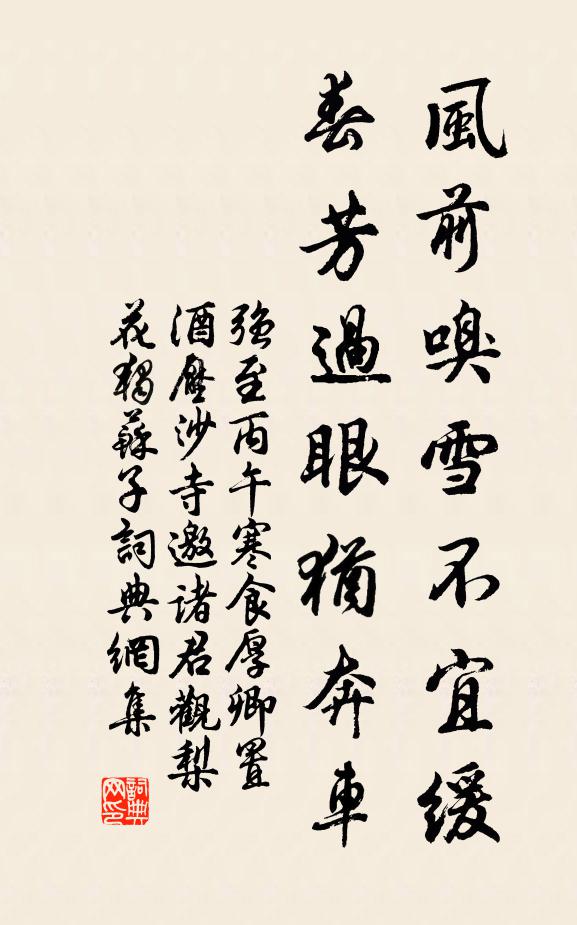 風前嗅雪不宜緩
春芳過眼猶奔車
強至丙午寒食厚卿置
酒壓沙寺邀諸君觀梨
花獨蘇子詞典網集
詞典网印